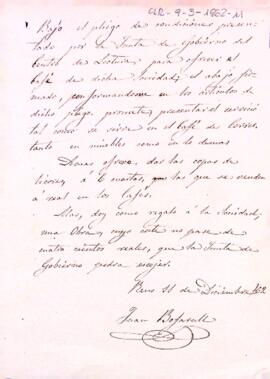 CLR-9-3-1862-11
Bajo el pliego de condiciones presen-
tado por la Junta de Gobierno del
Centro de Lectura, para ofrecer el
Café de dicha Sociedad; el abajo fir-
mado, conformandome en los articulos de
dicho pliego, promete presentar el servicio
tal como se sirve en el Café de
tanto en muebles como en lo demas
Demas ofrece, dar las copas de
licores, á 6 cuartos, que las que se venden
á real en los Cafés.
Mas, doy como regalo á la Sociedad,
una Obra, cuyo coste no pase de
cuatro cientos reales, que la Junta de
Gobierno podra escojer.
Reus 11 de Diciembre 1862
Juan Bofarull